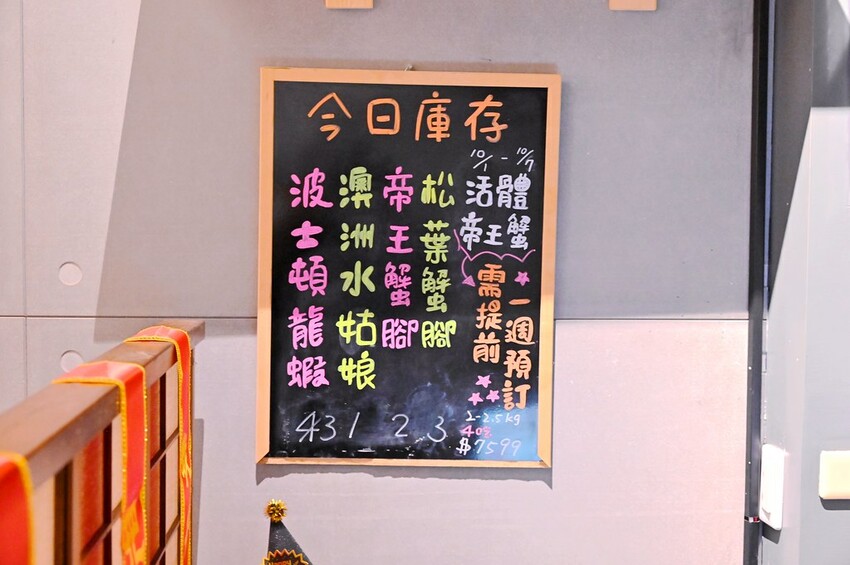 今日庫存
10/1 - 10/7
活體
帝王蟹
需提前
一週預訂
2-2.5kg
$7599
松葉蟹腳
3
帝王蟹腳
2
澳洲水姑娘
1
波士頓龍蝦
43